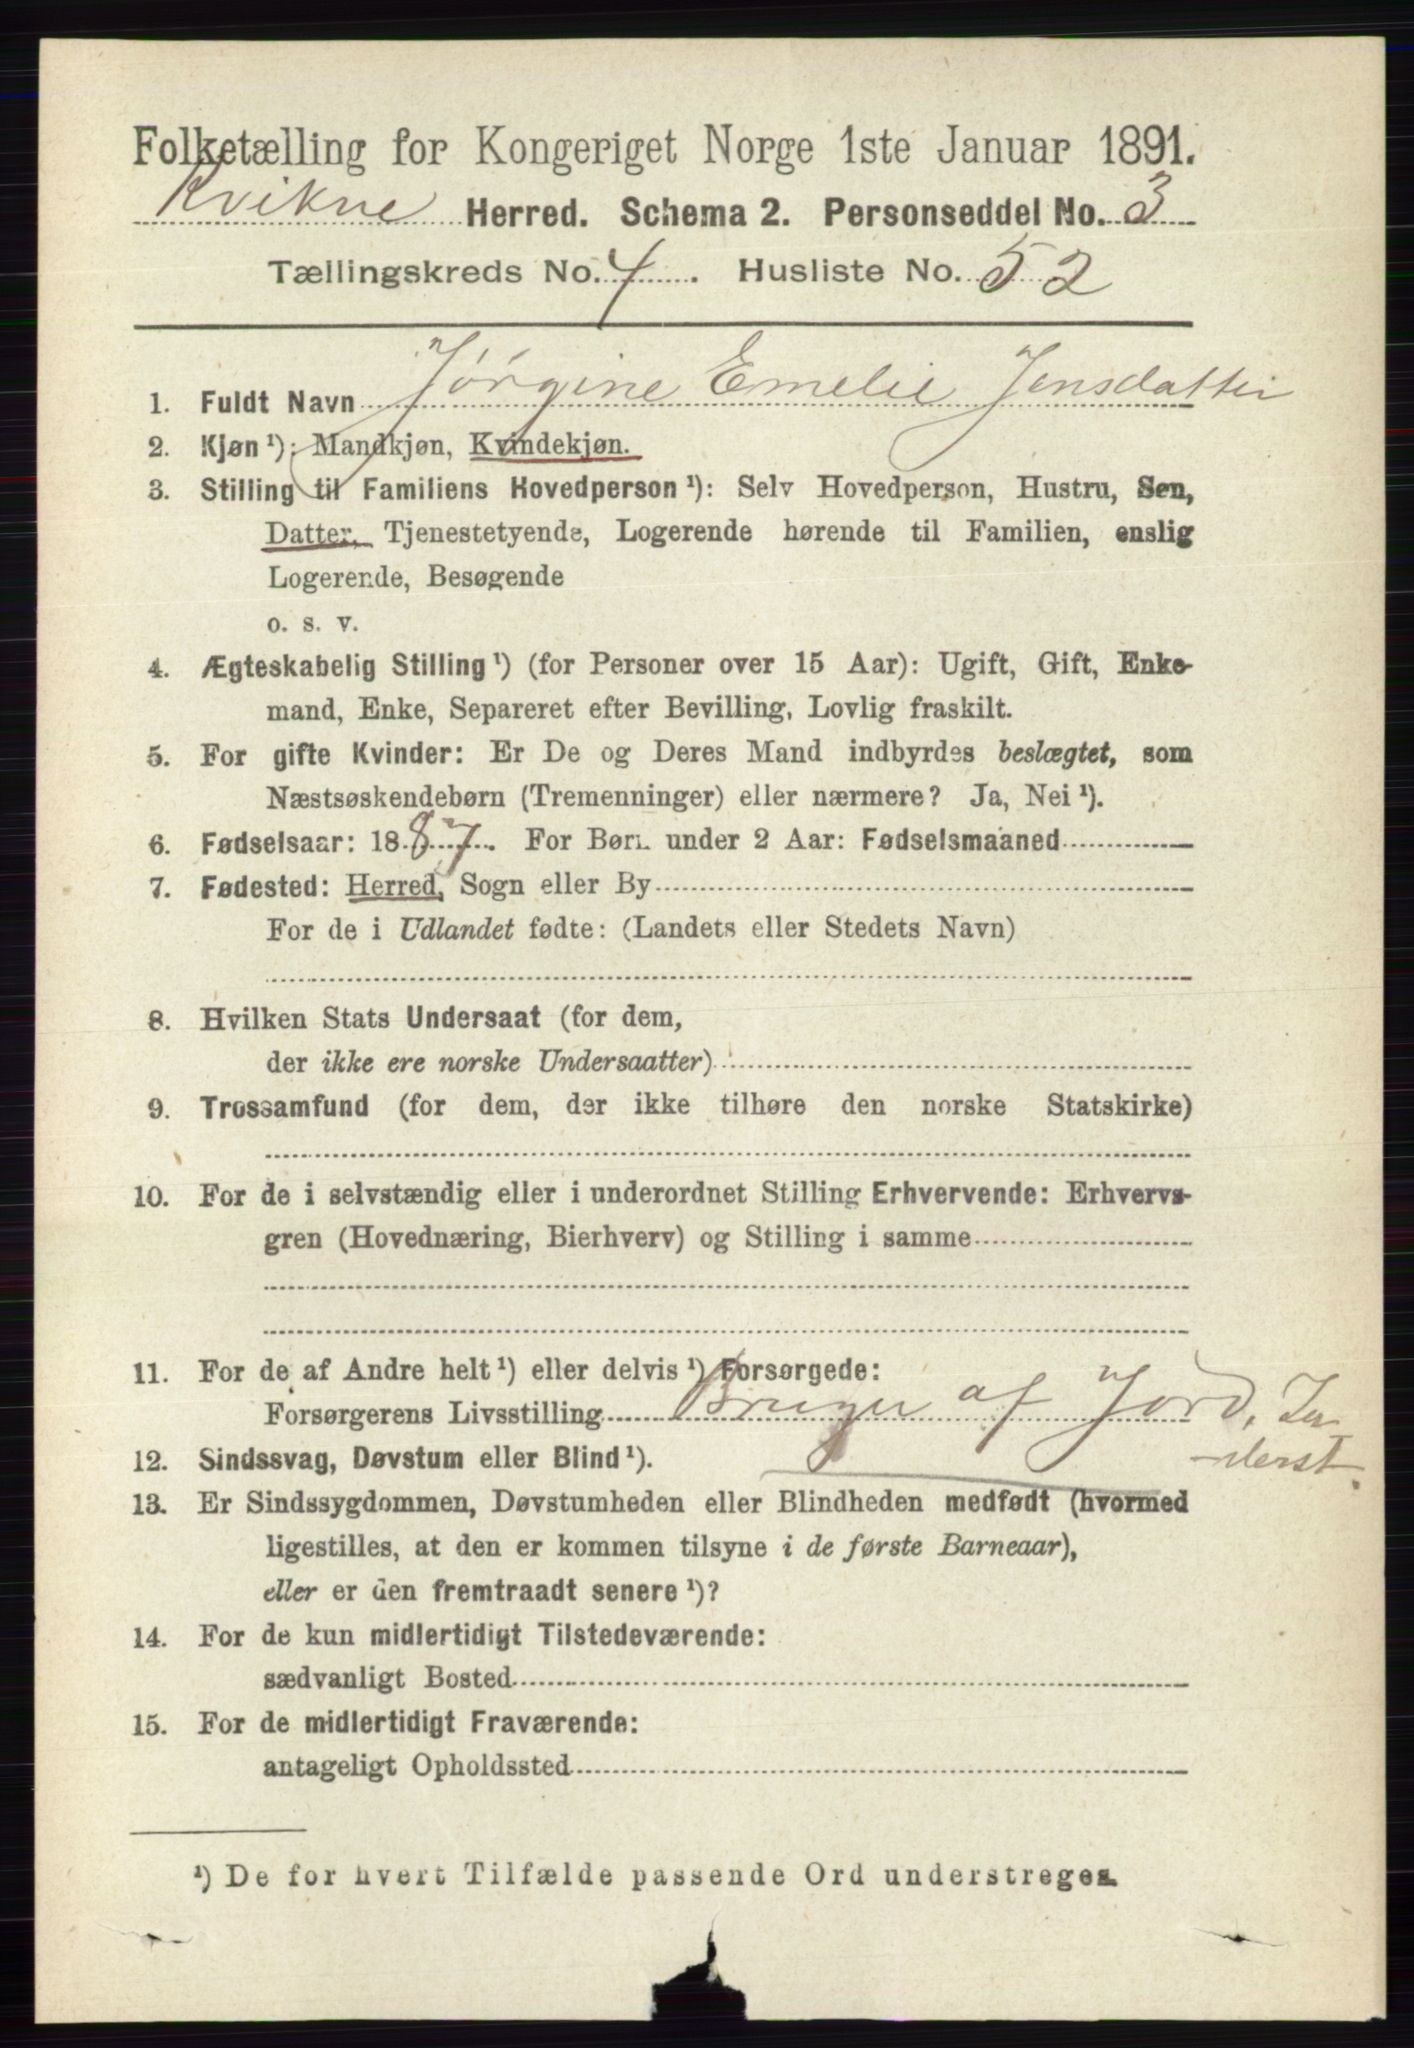 Folketælling for Kongeriget Norge 1ste Januar 1891.
Kvikne Herred. Schema 2. Personseddel No. 3
Tællingskreds No. 4. Husliste No. 52
1. Fuldt Navn Jørgine Emelie Jensdatter
2. Kjøn ¹): Mandkjøn, Kvindekjøn.
3. Stilling til Familiens Hovedperson ¹): Selv Hovedperson, Hustru, Søn,
Datter, Tjenestetyende, Logerende hørende til Familien, enslig
Logerende, Besøgende
o. s. v.
4. Ægteskabelig Stilling ¹) (for Personer over 15 Aar): Ugift, Gift, Enke-
mand, Enke, Separeret efter Bevilling, Lovlig fraskilt.
5. For gifte Kvinder: Er De og Deres Mand indbyrdes beslægtet, som
Næstsøskendebørn (Tremenninger) eller nærmere? Ja, Nei ¹).
6. Fødselsaar: 1887. For Børn under 2 Aar: Fødselsmaaned
7. Fødested: Herred, Sogn eller By
For de i Udlandet fødte: (Landets eller Stedets Navn)
8. Hvilken Stats Undersaat (for dem,
der ikke ere norske Undersaatter)
9. Trossamfund (for dem, der ikke tilhøre den norske Statskirke)
10. For de i selvstændig eller i underordnet Stilling Erhvervende: Erhvervs-
gren (Hovednæring, Bierhverv) og Stilling i samme
11. For de af Andre helt ¹) eller delvis ¹) Forsørgede:
Forsørgerens Livsstilling Bruger af Jord,
12. Sindssvag, Døvstum eller Blind ¹).
13. Er Sindssygdommen, Døvstumheden eller Blindheden medfødt (hvormed
ligestilles, at den er kommen tilsyne i de første Barneaar),
eller er den fremtraadt senere ¹)?
14. For de kun midlertidigt Tilstedeværende:
sædvanligt Bosted
15. For de midlertidigt Fraværende:
antageligt Opholdssted
¹) De for hvert Tilfælde passende Ord understreges.